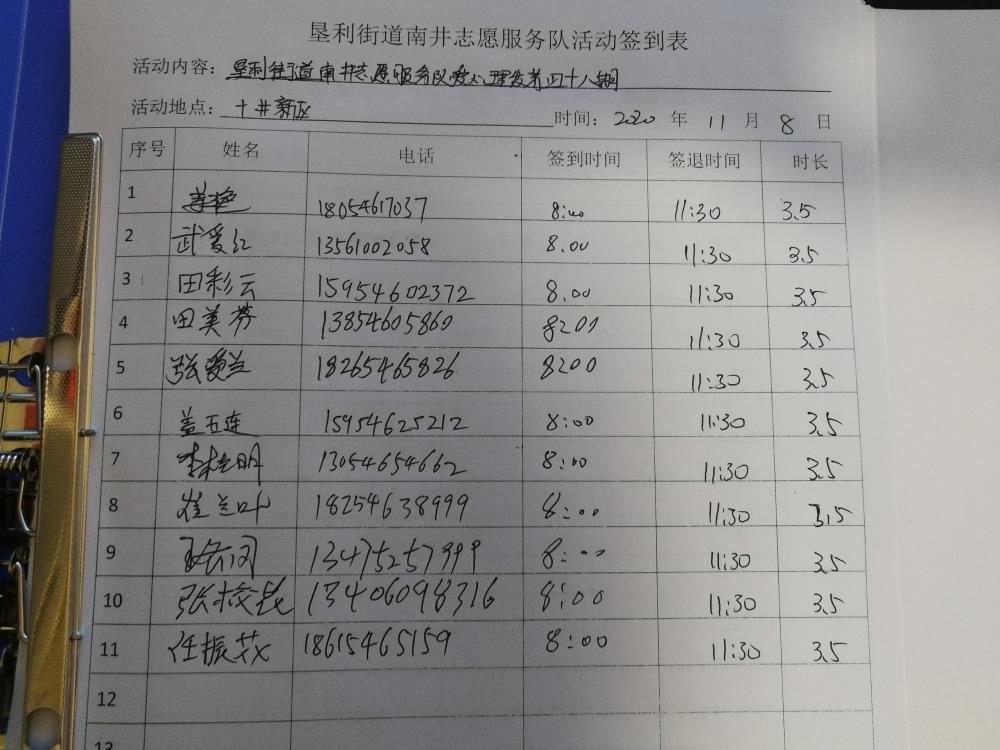 垦利街道南井志愿服务队活动签到表
活动内容：垦利街道南井志愿服务队爱心理发第四十八期
活动地点：十井新区 时间：2020 年 11 月 8 日
序号 姓名 电话 签到时间 签退时间 时长
1 18054617037 8:00 11:30 3.5
2 武爱红 13561002058 8.00 11:30 3.5
3 田彩云 15954602372 8.00 11:30 3.5
4 田美芬 13854605860 8:00 11:30 3.5
5 张爱兰 18265465826 8:00 11:30 3.5
6 盖玉连 15954625212 8:00 11:30 3.5
7 13054654662 8:00 11:30 3.5
8 崔兰叶 18254638999 8:00 11:30 3.5
9 13475257999 8:00 11:30 3.5
10 13406098316 8:00 11:30 3.5
11 任振英 18615465159 8:00 11:30 3.5
12
13